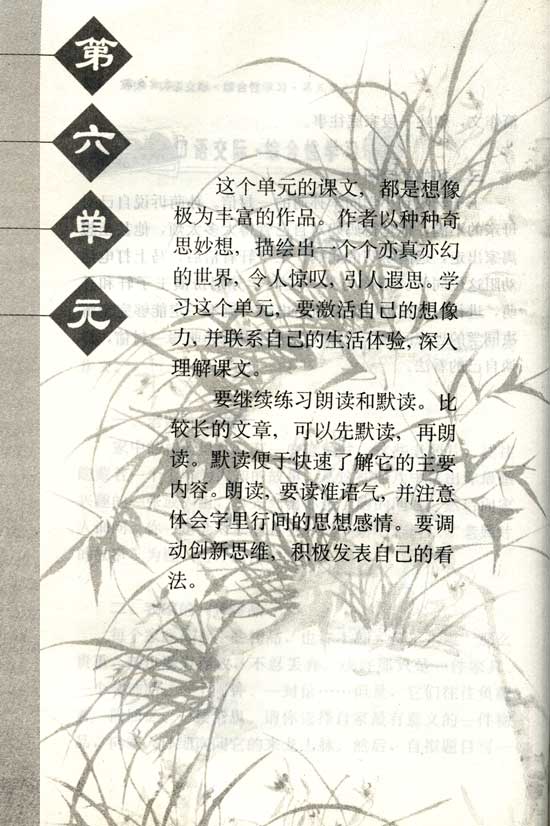 第
六
单
元
这个单元的课文，都是想像
极为丰富的作品。作者以种种奇
思妙想，描绘出一个个亦真亦幻
的世界，令人惊叹，引人遐思。学
习这个单元，要激活自己的想像
力，并联系自己的生活体验，深入
理解课文。
要继续练习朗读和默读。比
较长的文章，可以先默读，再朗
读。默读便于快速了解它的主要
内容。朗读，要读准语气，并注意
体会字里行间的思想感情。要调
动创新思维，积极发表自己的看
法。